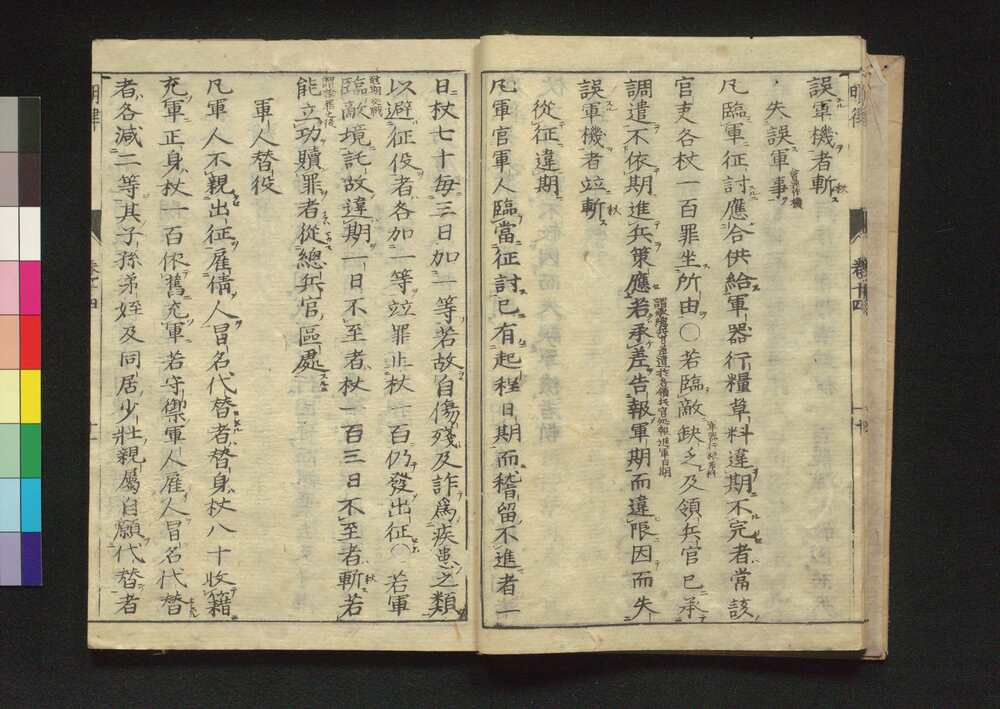 誤軍機者斬
失誤軍事
凡臨軍征討應合供給軍器行糧草料違期不完者當該
官吏各杖一百罪坐所由〇若臨敵缺乏及領兵官已承
調遣不依期進兵策應若承差告報軍期而違限因而失
誤軍機者並斬
從征違期
凡軍官軍人臨當征討已有起程日期而稽留不進者一
日杖七十每三日加一等若故自傷殘及詐爲疾患之類
以避征役者各加一等並罪止杖一百仍發出征〇若軍
臨敵境託故違期一日不至者杖一百三日不至者斬若
能立功贖罪者從總兵官區處
軍人替役
凡軍人不親出征雇倩人冒名代替者替身杖八十收籍
充軍正身杖一百依舊充軍若守禦軍人雇人冒名代替
者各減二等其子孫弟姪及同居少壯親屬自願代替者
明律
卷十四